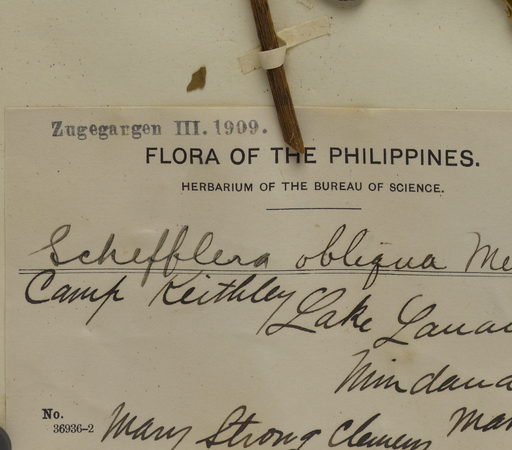 Zugegangen III. 1909.
FLORA OF THE PHILIPPINES.
HERBARIUM OF THE BUREAU OF SCIENCE.
Schefflera obliqua Me
Camp Keithley Lake Lanao
Mindana
No. Mary Strong Clemens Mar
36936-2